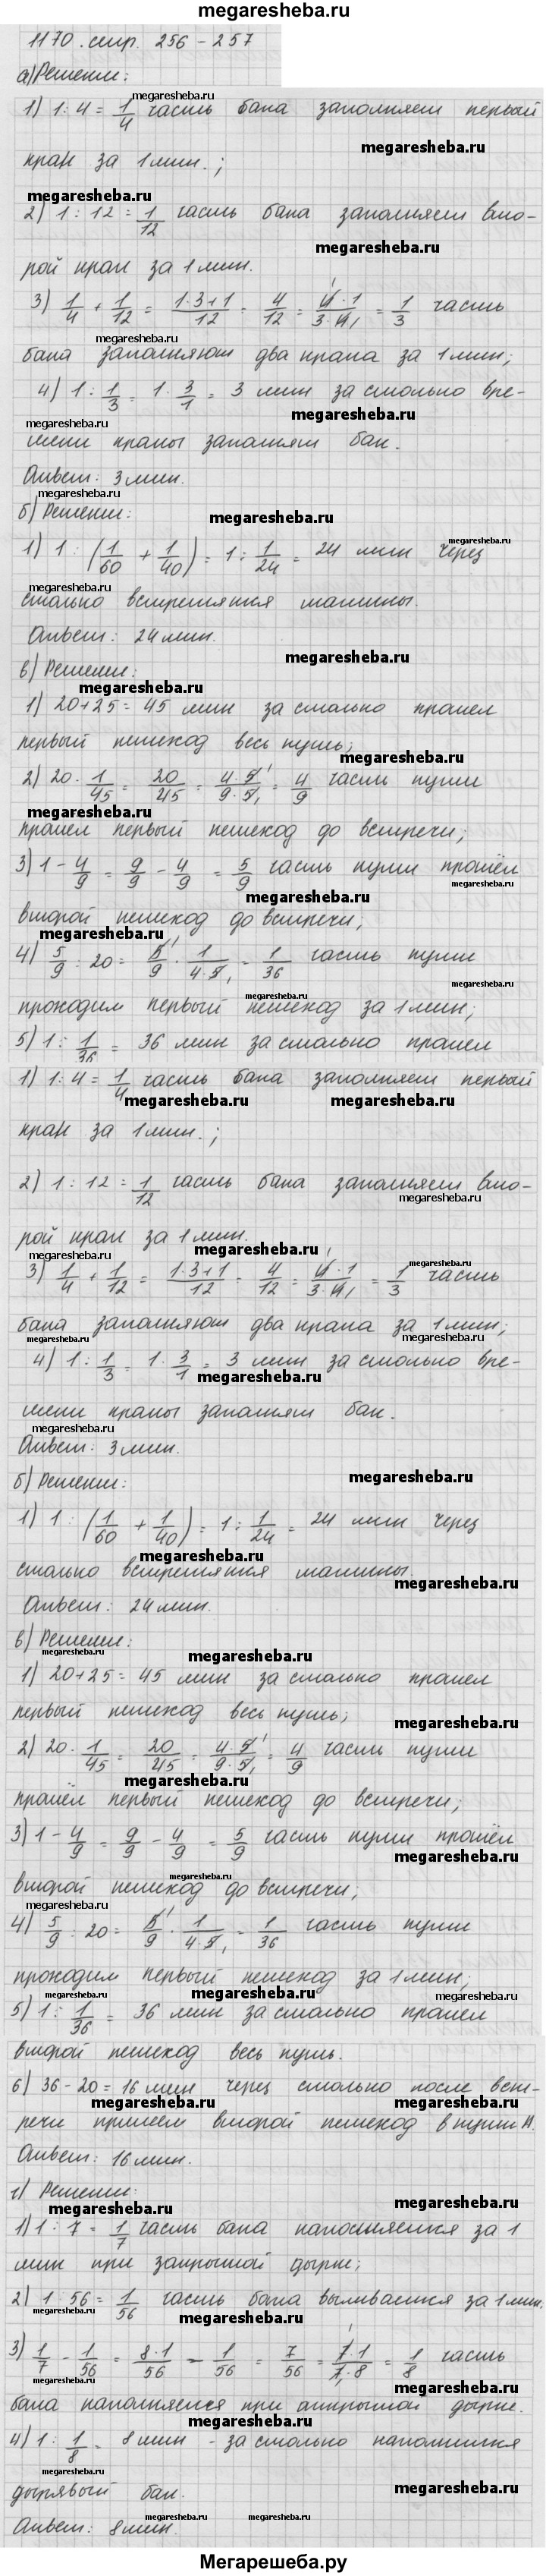 megaresheba.ru
1170. стр. 256 - 257
а) Решение:
1) 1 : 4 = 1/4 часть бака заполняет первый
кран за 1 мин.;
2) 1 : 12 = 1/12 часть бака заполняет вто-
рой кран за 1 мин.
3) 1/4 + 1/12 = (1·3+1)/12 = 4/12 = (4·1)/(3·4) = 1/3 часть
бака заполняют два крана за 1 мин;
4) 1 : 1/3 = 1 · 3/1 = 3 мин за столько вре-
мени краны заполнят бак.
Ответ: 3 мин.
б) Решение:
1) 1 : (1/60 + 1/40) = 1 : 1/24 = 24 мин через
столько встретятся машины.
Ответ: 24 мин.
в) Решение:
1) 20+25 = 45 мин за столько прошел
первый пешеход весь путь;
2) 20 · 1/45 = 20/45 = (4·5)/(9·5) = 4/9 часть пути
прошел первый пешеход до встречи;
3) 1 - 4/9 = 9/9 - 4/9 = 5/9 часть пути прошёл
второй пешеход до встречи;
4) 5/9 : 20 = 5/9 · 1/(4·5) = 1/36 часть пути
проходит первый пешеход за 1 мин;
5) 1 : 1/36 = 36 мин за столько прошел
1) 1 : 4 = 1/4 часть бака заполняет первый
кран за 1 мин.;
2) 1 : 12 = 1/12 часть бака заполняет вто-
рой кран за 1 мин.
3) 1/4 + 1/12 = (1·3+1)/12 = 4/12 = (4·1)/(3·4) = 1/3 часть
бака заполняют два крана за 1 мин;
4) 1 : 1/3 = 1 · 3/1 = 3 мин за столько вре-
мени краны заполнят бак.
Ответ: 3 мин.
б) Решение:
1) 1 : (1/60 + 1/40) = 1 : 1/24 = 24 мин через
столько встретятся машины.
Ответ: 24 мин.
в) Решение:
1) 20+25 = 45 мин за столько прошел
первый пешеход весь путь;
2) 20 · 1/45 = 20/45 = (4·5)/(9·5) = 4/9 часть пути
прошёл первый пешеход до встречи;
3) 1 - 4/9 = 9/9 - 4/9 = 5/9 часть пути прошёл
второй пешеход до встречи;
4) 5/9 : 20 = 5/9 · 1/(4·5) = 1/36 часть пути
проходит первый пешеход за 1 мин;
5) 1 : 1/36 = 36 мин за столько прошел
второй пешеход весь путь.
6) 36 - 20 = 16 мин через столько после вст-
речи придет второй пешеход в пункт А.
Ответ: 16 мин.
г) Решение:
1) 1 : 7 = 1/7 часть бака наполняется за 1
мин при закрытой дырке;
2) 1 : 56 = 1/56 часть бака выливается за 1 мин.
3) 1/7 - 1/56 = (8·1)/56 - 1/56 = 7/56 = (7·1)/(7·8) = 1/8 часть
бака наполняется при открытой дырке.
4) 1 : 1/8 = 8 мин - за столько наполнится
дырявый бак.
Ответ: 8 мин.
Мегарешеба.ру